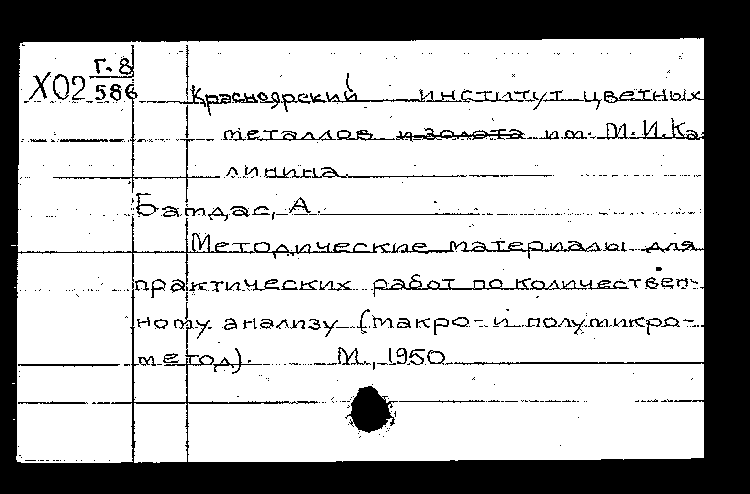 Г.8
Х02 586
Красноярский институт цветных
металлов и золота им. М.И.Ка-
линина
Батдас, А.
Методические материалы для
практических работ по количествен-
ному анализу (макро- и полумикро-
метод). М., 1950